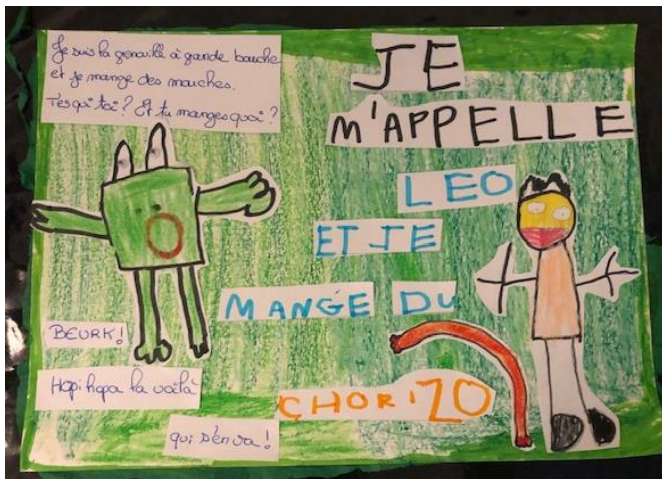 Je suis la grenouille à grande bouche
et je mange des mouches.
T'es qui toi? Et tu manges quoi?
JE
M'APPELLE
LEO
ET JE
MANGE DU
CHORIZO
BEURK!
Hopi hopa la voilà
qui s'en va!